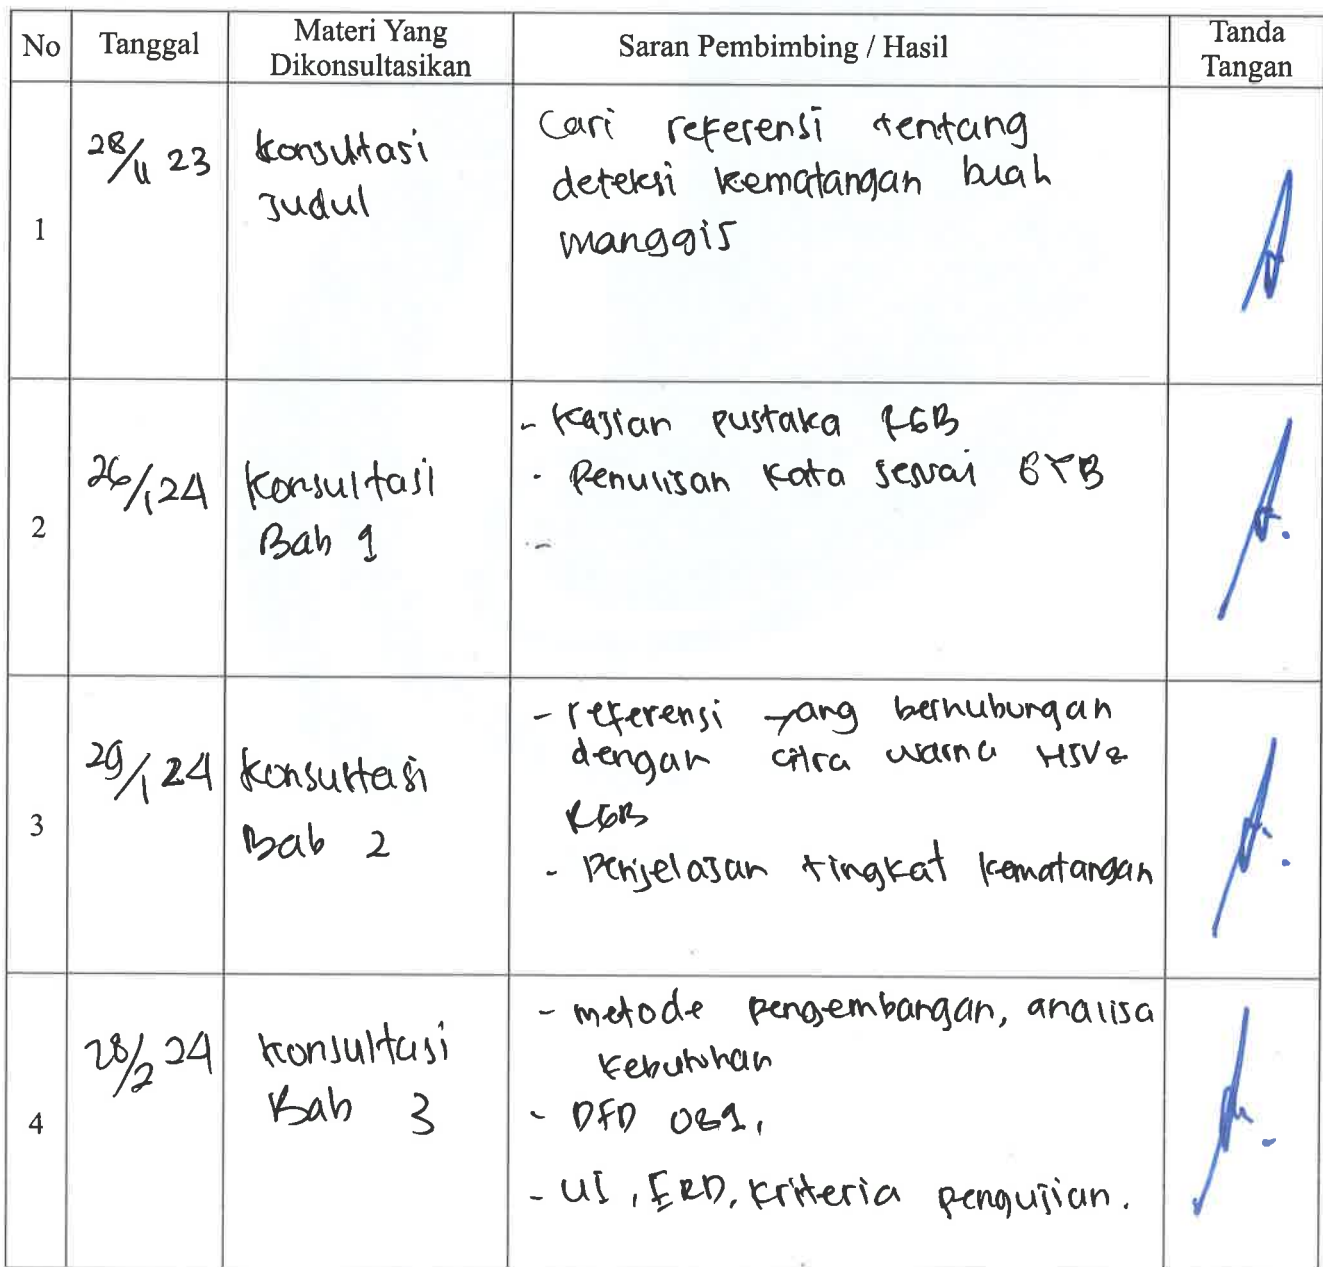 No Tanggal Materi Yang Dikonsultasikan Saran Pembimbing / Hasil Tanda Tangan
1 28/11 23 konsultasi Judul
Cari referensi tentang
deteksi kematangan buah
manggis
2 26/1 24 Konsultasi Bab 1
- Kajian pustaka RGB
- Penulisan kata sesuai
-
3 29/1 24 konsultasi Bab 2
- referensi yang berhubungan
dengan citra warna HSV &
RGB
- Penjelasan tingkat kematangan
4 28/2 24 konsultasi Bab 3
- metode pengembangan, analisa
kebutuhan
- DFD 0&1,
- UI, ERD, kriteria pengujian.